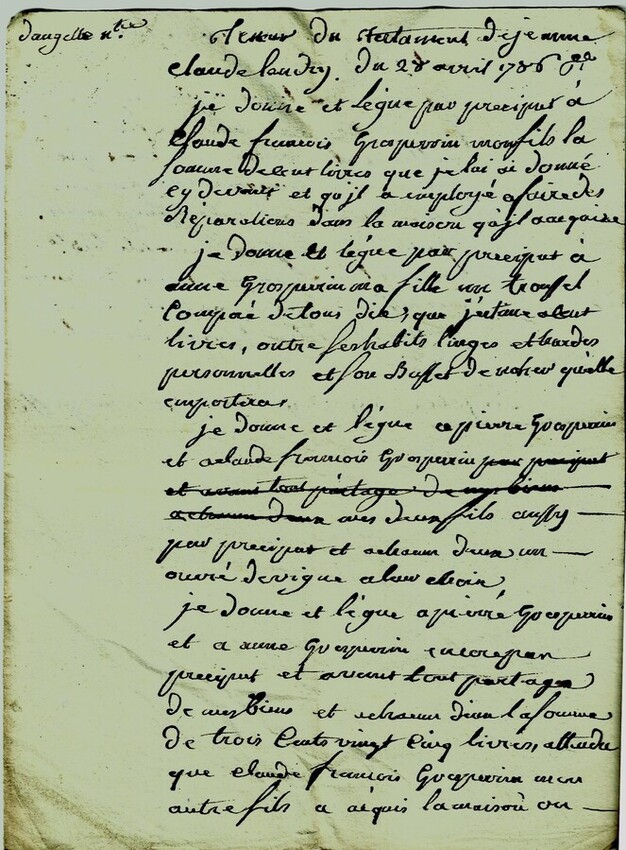 dangelle nre
Teneur du testament de jeanne
claude landry. du 28 avril 1786
je donne et légue par preciput à
Claude francois Grosperrin mon fils la
somme de cent livres que je lui ai donné
cy devant et qu'jl a employé a faire des
Réparations dans la maison qu'jl a acquise
je donne et légue par preciput à
anne Grosperrin ma fille un troussel
Composé de tous dies, que j'estime a cent
livres, outre ses habits linges et hardes
personnelles et son Buffet de noher qu'elle
emportera
je donne et légue a pierre Grosperrin
et a claude francois Grosperrin par preciput
et avant tout pártage de mes biens
a chacun deux mes deux fils aussy
par preciput et a chacun deux un
ouvré de vigne a leur choix
je donne et légue a pierre Grosperrin
et a anne Grosperrin encore par
preciput et avant tout partage
de mes biens et a chacun d'eux la somme
de trois Cents vingt Cinq livres, attendu
que claude francois Grosperrin mon
autre fils a acquis la maison ou